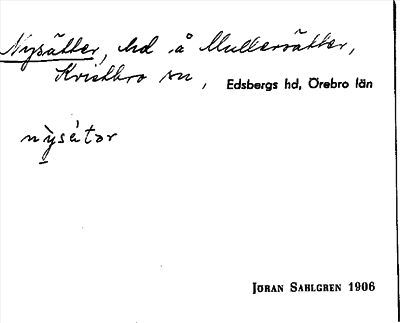 Nysätter, hd å Mullersätter,
Kristbro sn, Edsbergs hd, Örebro län
nỳsátər
JÖRAN SAHLGREN 1906